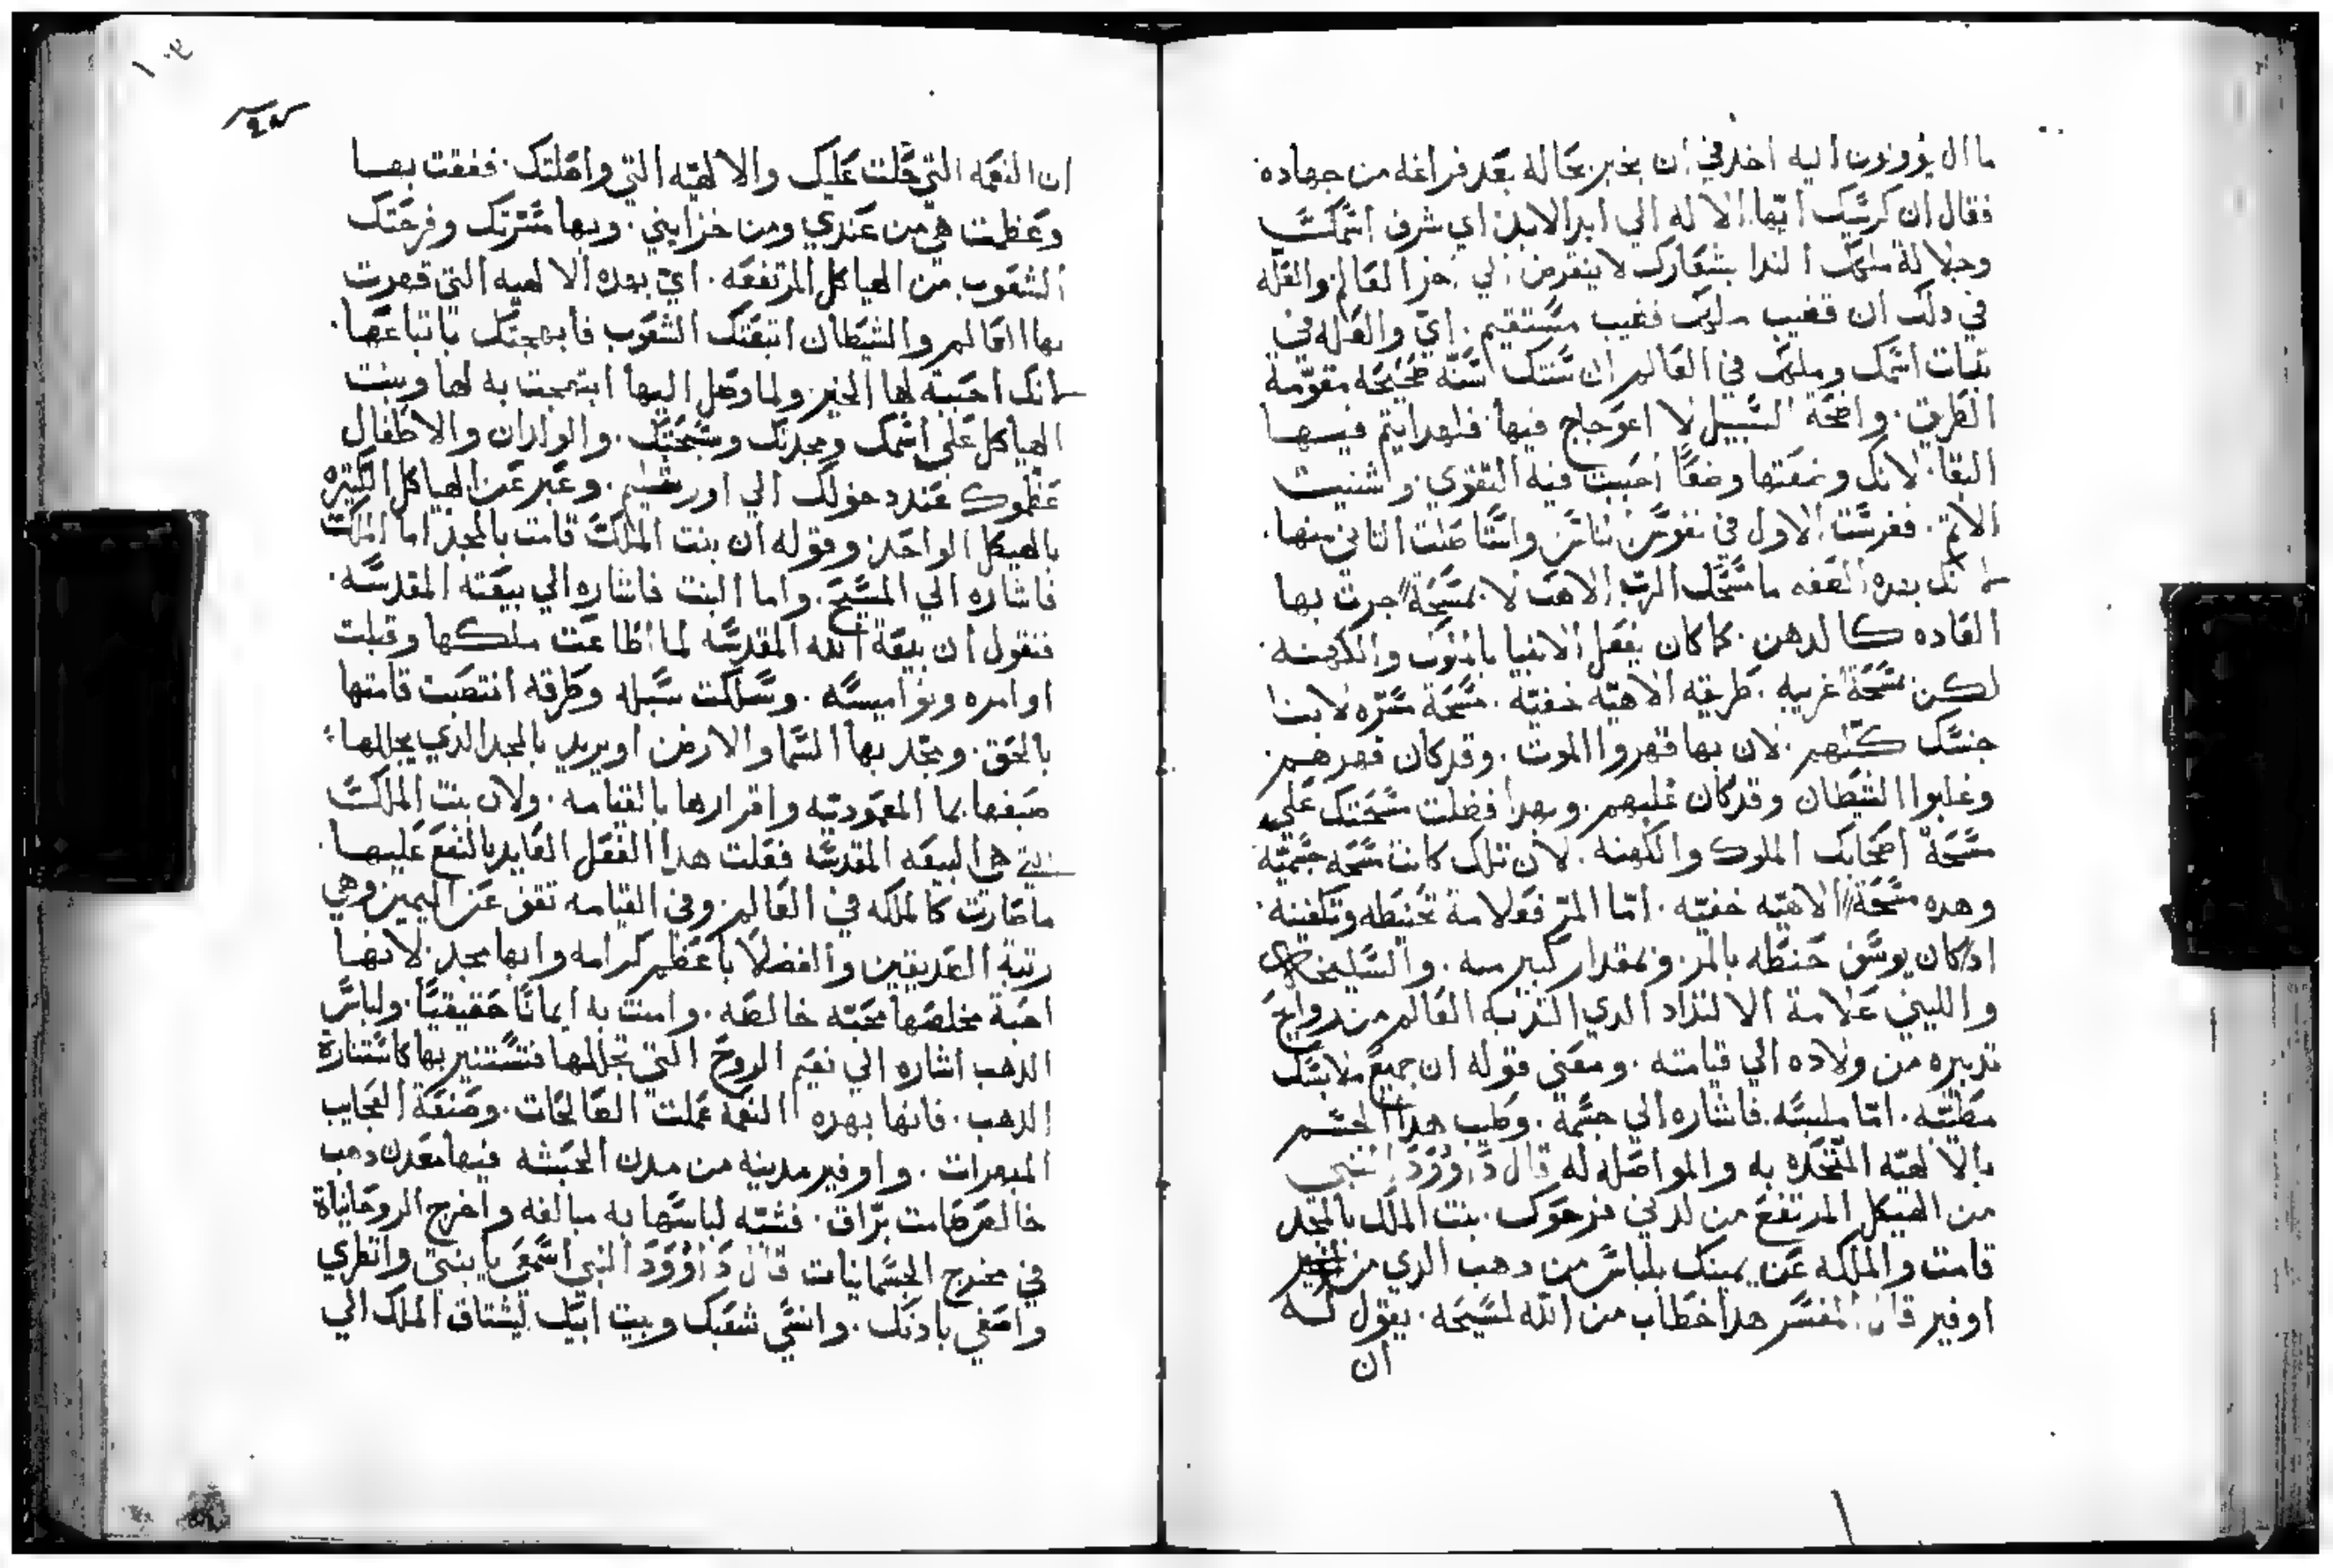 ما ال يؤورون اليه اخد في ان يخبر بحاله بعد فراغه من جهاده
فقال ان كرسيك ايها الاله الي ابد الابدين اي شرف اسمك
وجلالة ملكك الندا بشعارك لا ينقرض الي اخر العالم والعله
في دلك ان قضيب ملكك قضيب مستقيم . اي والعله في
ثبات اسمك وملكك في العالم ان سنتك سنه صحيحه مقومة
الطريق . واضحة السبيل لا اعوجاج فيها فلهدا يتم فيها
البقا . لانك وضعتها وضعًا احببت فيه التقوي . واشنيت
الاتم . فغرست الاول في نفوس الناس واستاصلت الثاني منها .
لانك بهده الصفه ما مسحك الرب الاهك لا بمسحة جرت بها
العاده كالدهن . كما كان يفعل الانبيا بالملوك والكهنه .
لكن مسحة غريبه . طريقه الاهيه خفيه . مسحة مسره لابنا
جنسك كلهم . لان بها قهروا الموت . وقد كان قهرهم .
وغلبوا الشيطان وقد كان غلبهم . وبهدا فضلت مسحتك علي
مسحة اصحابك الملوك والكهنه . لان تلك كانت مسحه جسميه
وهده مسحة الاهيه خفيه . اما المر فعلامة تحنيطه وتكفينه .
اد كان يوسف حنطه بالمر . وبمقدار كبير منه . والسليخه
والليني علامة الالتداد الدي التد به العالم من روايح
تدبيره من ولاده الي قيامته . ومعني قوله ان جميع ملابسك
مطيبه . اما ملبسه . فاشاره الي جسمه . وطيب هدا الجسم
بالالهيه المتحده به والمواصله له قال داوود النبي
من الهيكل المرتفع من لدني فرحوك . بنت الملك بالمجد
قامت والملكه عن يمينك بلباس من دهب الدي من
اوفير قال المفسر هدا خطاب من الله لمسيحه . يقول له
ان
ان النعمه التي حلت عليك والالهيه التي واصلتك . ففقت بها
وعظمت هي من عندي ومن خزايني . وبها مسرتك وفرحتك
الشعوب من الهياكل المرتفعه . اي بهده الالهيه التي قهرت
بها العالم والشيطان اتبعتك الشعوب فابهجتك باتباعها .
لانك احببت لها الخير . ولما وصل اليها ابتهجت به لها وبنت
الهياكل علي اسمك ومجدتك وسبحتك . والولدان والاطفال
عظموك عند دخولك الي اورشليم . وعبر عن الهياكل الكثيره
بالهيكل الواحد . وقوله ان بنت الملك قامت بالمجد اما الملك
فاشاره الي المسيح . واما البنت فاشاره الي بيعته المقدسه .
فنقول ان بيعة الله المقدسه لما اطاعت ملكها وقبلت
اوامره ونواميسه . وسلكت سبله وطرقه انتصبت قامتها
بالحق . ومجد بها السما والارض اويريد بالمجد الدي يجللها :
صبغها بما المعموديه واقرارها بالقيامه . ولان بنت الملك
التي هي البيعه المقدسه فعلت هدا الفعل العايد بالنفع عليها .
ما صارت كالملكه في العالم . وفي القيامه تقف عن اليمين وهي
رتبة الصديقين والفضلا باعظم كرامه وابها مجد . لانها
احبة مخلصها محبه خالصه . وامنت به ايمانًا حقيقيًا . ولباس
الدهب اشاره الي نعيم الروح التي تجللها فتستنير بها كاستنارة
الدهب . فانها بهده النعمه عملت الصالحات . وصنعة العجايب
المبهرات . واوفير مدينه من مدن الحبشه فيها معدن دهب
خالص صامت براق . فشبه لباسها به مبالغه واخرج الروحانياة
في مخرج الجسمانيات قال داوود النبي اسمعي يا بنتي وانظري
واصغي بادنك . وانسي شعبك وبيت ابيك ليشتاق الملك الي